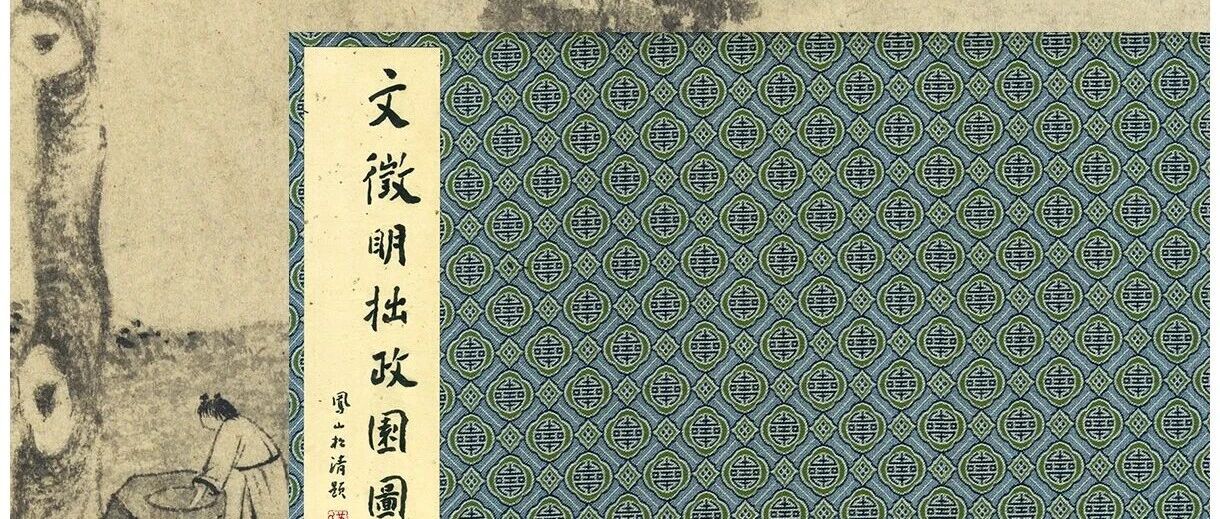 文徵明拙政園圖
鳳山松清題